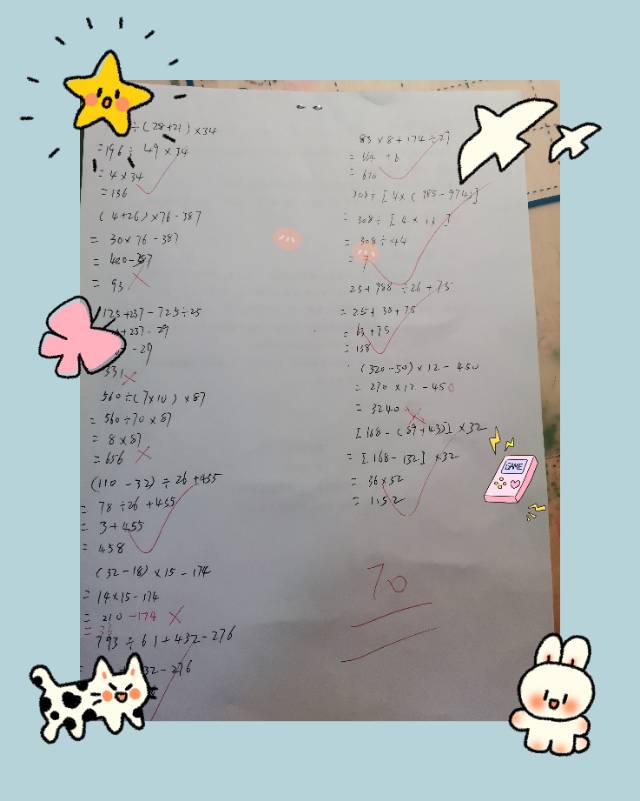 ÷(28+21)×34
=196÷49×34
=4×34
=136
(4+26)×76-387
=30×76-387
=480-387
=93
125+237-725÷25
+237-29
-29
331
560÷(7×10)×87
=560÷70×87
=8×87
=656
(110-32)÷26+455
=78÷26+455
=3+455
=458
(32-18)×15-174
=14×15-174
=210-174
=36
793÷61+432-276
32-276
83×8+174÷29
=664+6
=670
308÷[4×(985-974)]
=308÷[4×11]
=308÷44
=7
25+988÷26+75
=25+38+75
=63+75
=138
(320-50)×12-450
=270×12-450
=3240
[168-(89+43)]×32
=[168-132]×32
=36×32
=1152
GAME
70